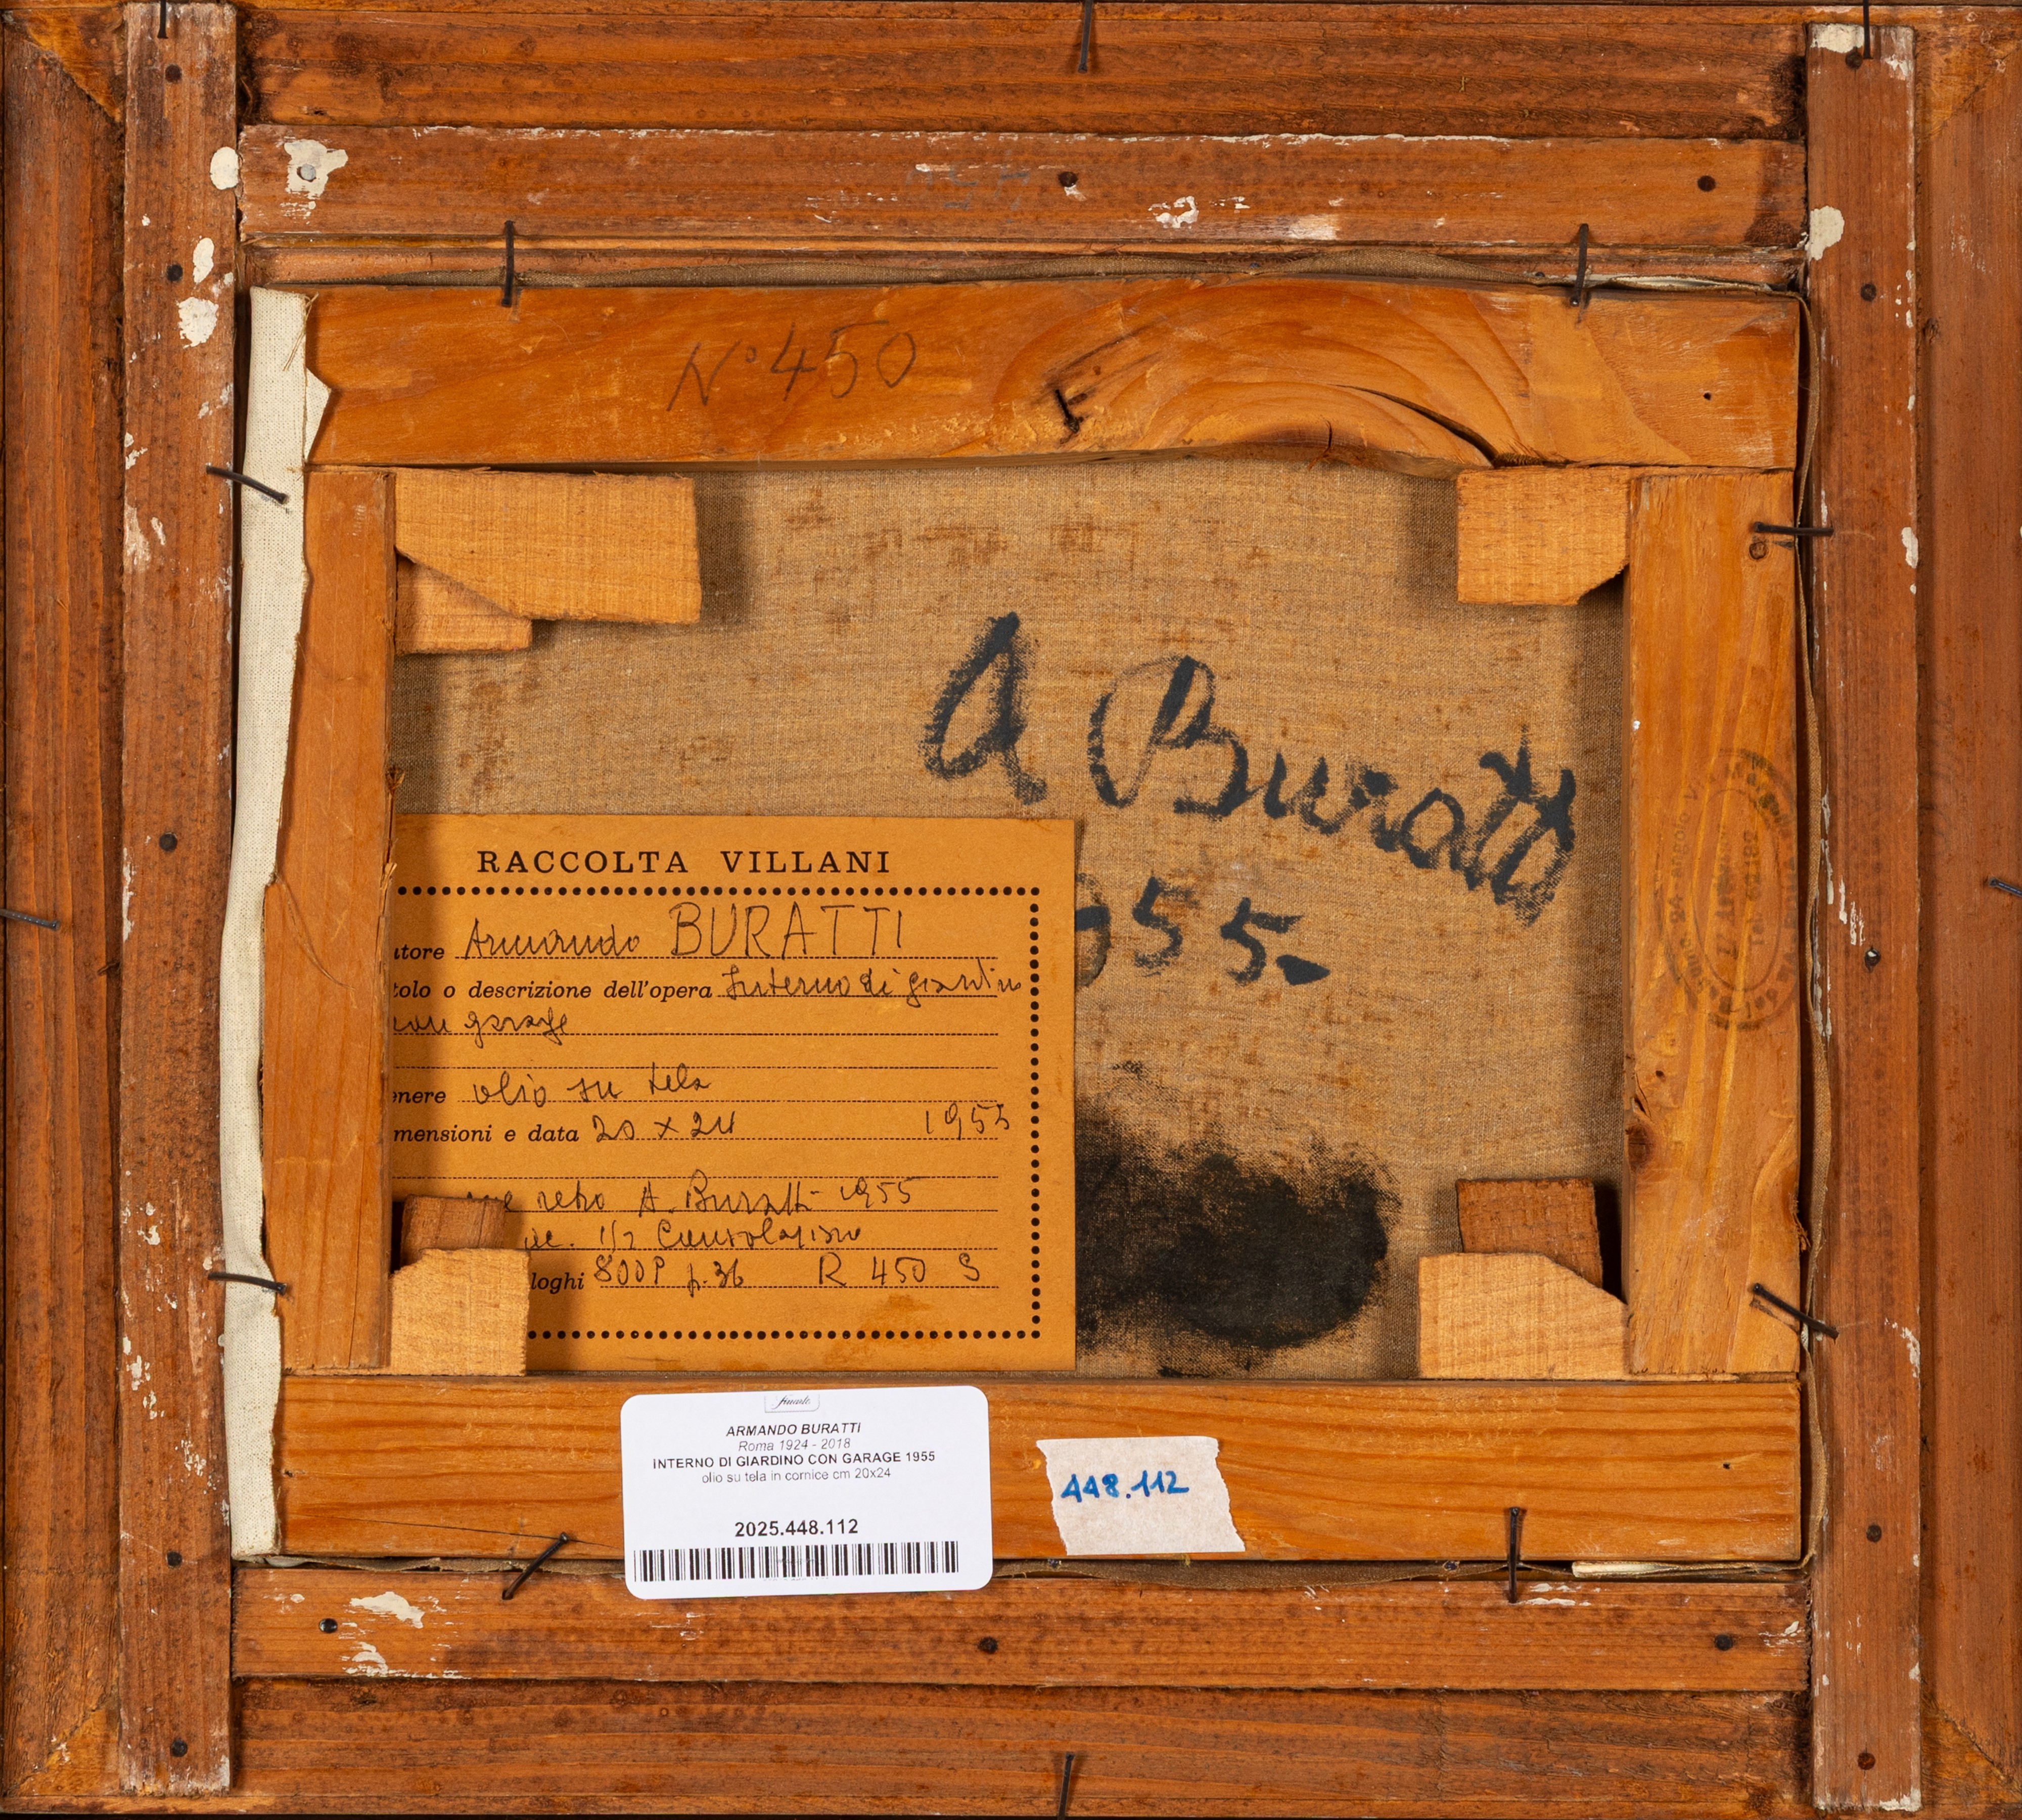 N° 450
A Buratti
955.
RACCOLTA VILLANI
utore Armando BURATTI
tolo o descrizione dell'opera Interno di giardino
con garage
enere olio su tela
mensioni e data 20 x 24 1955
retro A. Buratti - 1955
1/2
loghi 800P p. 36 R 450 S
finarte
ARMANDO BURATTI
Roma 1924 - 2018
INTERNO DI GIARDINO CON GARAGE 1955
olio su tela in cornice cm 20x24
2025.448.112
448.112